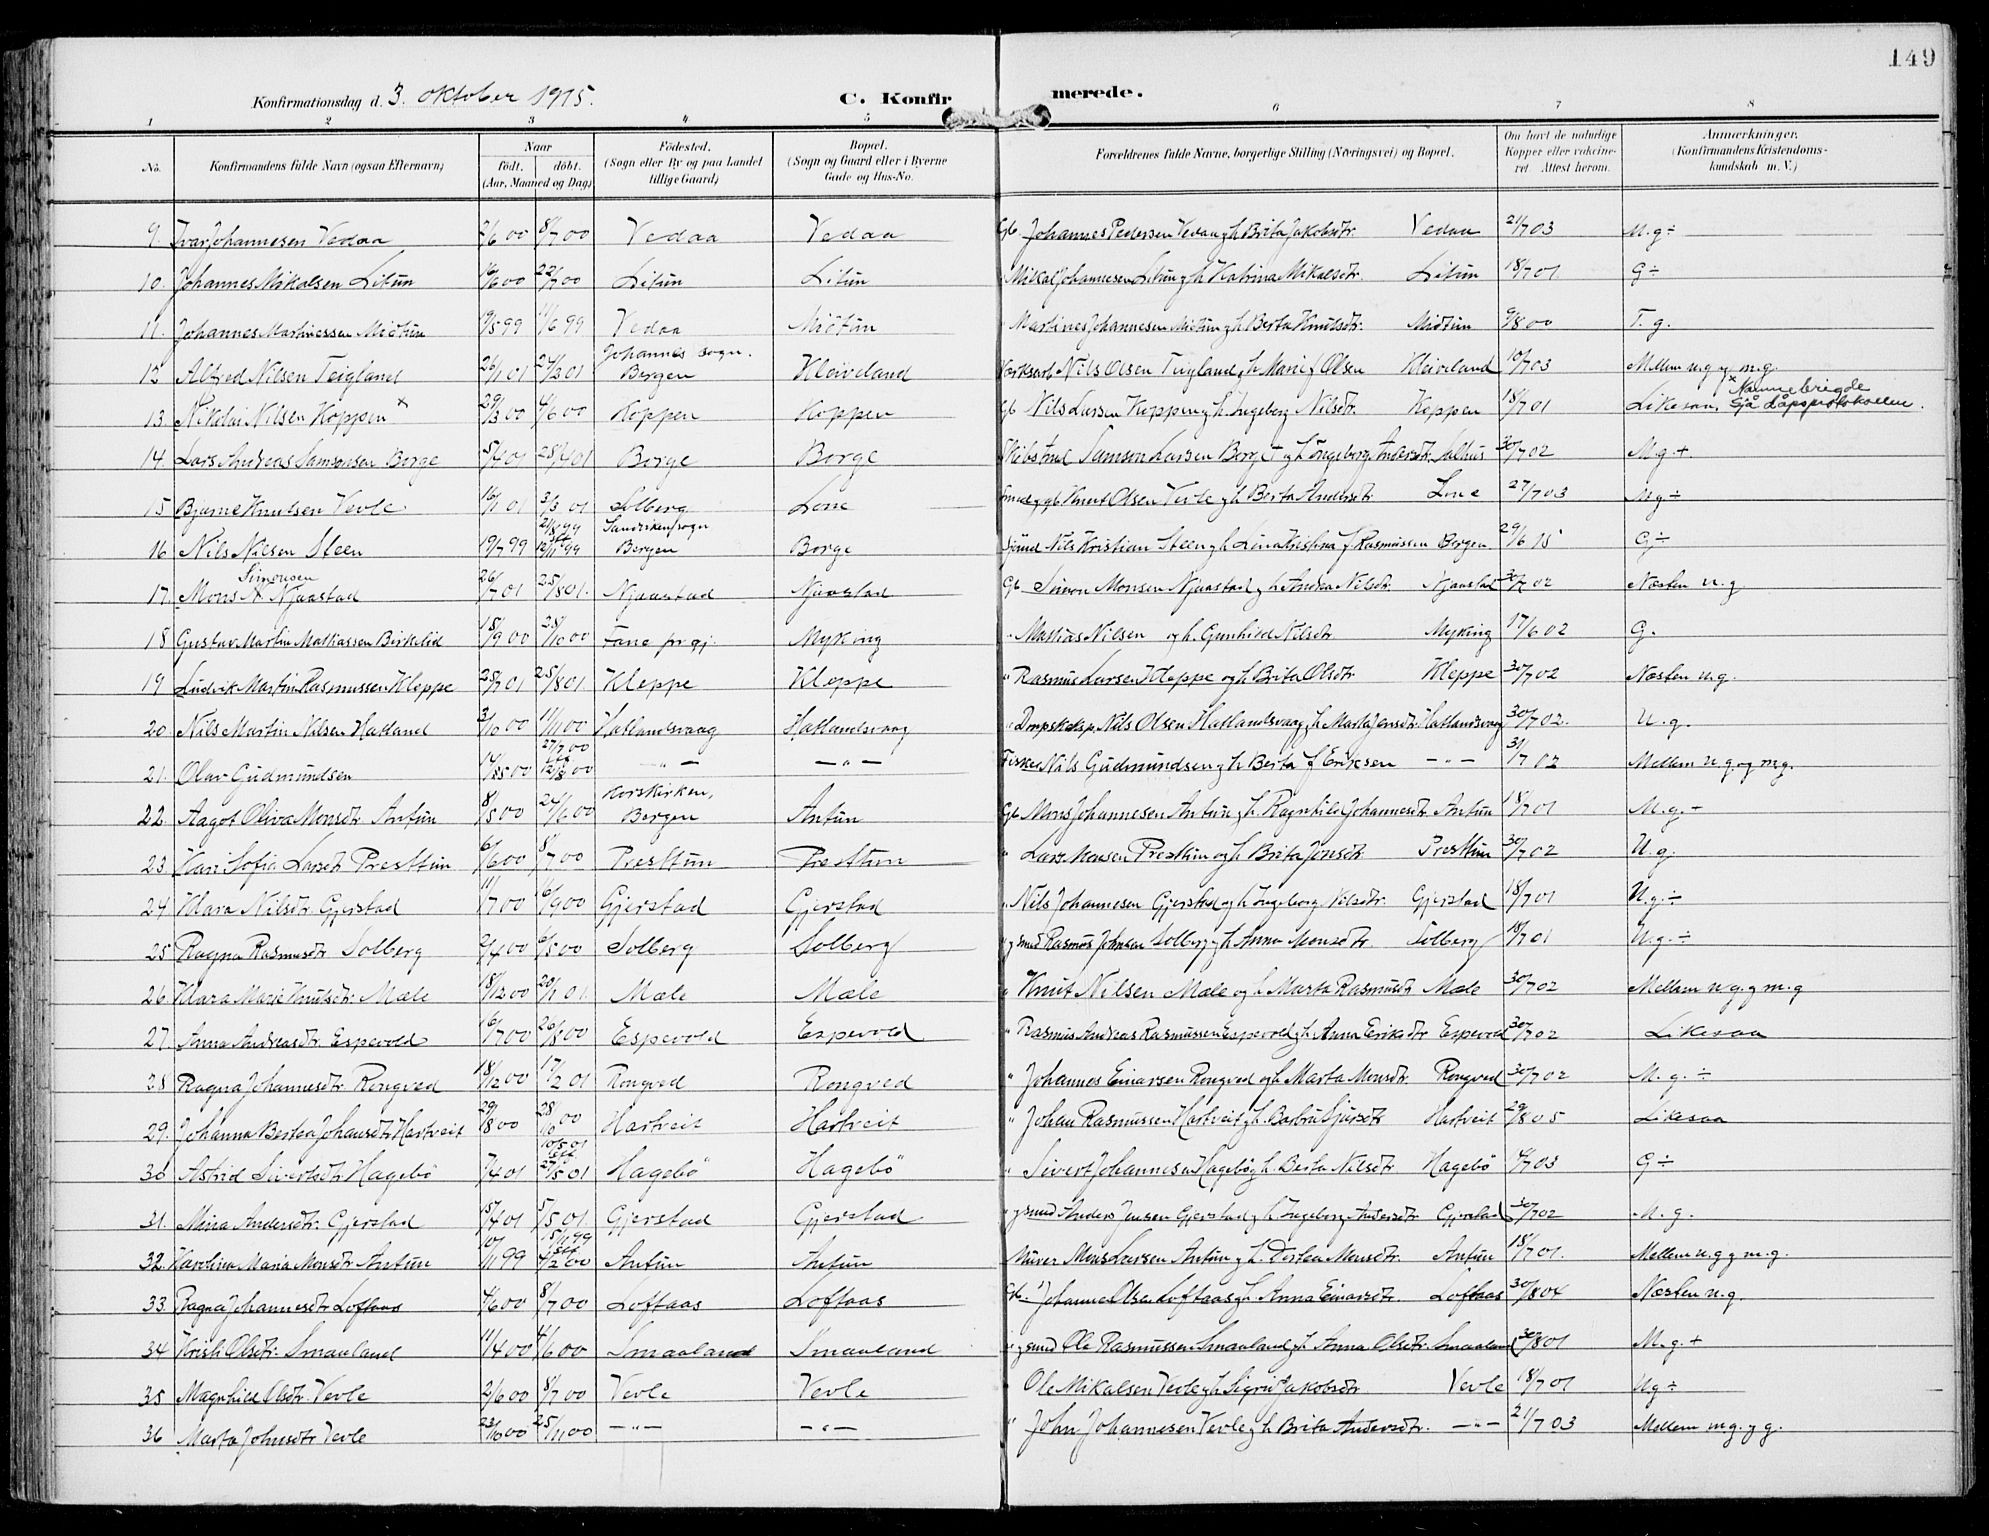 149
Konfirmationsdag d. 3. oktober 1915.
C. Konfirmerede.
1 2 3 4 5 6 7 8
No. Konfirmandens fulde Navn (ogsaa Efternavn) Naar födt. döbt. (Aar, Maaned og Dag) Födested. (Sogn eller By og paa Landet tillige Gaard) Bopæl. (Sogn og Gaard eller i Byerne Gade og Hus-No. Forældrenes fulde Navne, borgerlige Stilling (Næringsvei) og Bopæl. Om havt de naturlige Kopper eller vaccineret. Attest herom. Anmærkninger. (Konfirmandens Kristendomskundskab m. V.)
9. Ivar Johannesen Vedaa 2/6 00 8/7 00 Vedaa Vedaa Gb. Johannes Pedersen Vedaa og h. Brita Jakobsdtr. Vedaa 21/7 03 M.g ÷
10. Johannes Mikalsen Litun 16/6 00 22/7 00 Litun Litun " Mikal Johannesen Litun og h. Katrina Mikalsdtr. Litun 18/7 01 G ÷
11. Johannes Martinessen Midtun 19/5 99 11/6 99 Vedaa Midtun " Martines Johannesen Midtun og h. Berta Knutsdtr. Midtun 9/8 00 T. g.
12 Alfred Nilsen Teigland 26/1 01 24/3 01 Johannes sogn. Bergen Kleiveland Nils Olsen Teigland og h. Marie f Olsen Kleiveland 10/7 03 Mellem m.g og m.g.
13. Nikolai Nilsen Koppen x 29/3 00 4/6 00 Koppen Koppen Gb Nils Larsen Koppen og h. Ingeborg Nilsdtr. Koppen 18/7 01 Likesaa. x Namnebrigde Sjå dåpsprotokollen.
14. Lars Andreas Samsonsen Borge 5/4 01 28/4 01 Borge Borge Samson Larsen Borge + og h. Ingeborg Andersdtr. Salhus 30/7 02 M.g +
15 Bjarne Knutsen Vevle 16/1 01 3/3 01 Solberg Lone Smed og gb. Knut Olsen Vevle og h Berta Andersdtr Lone 27/7 03 M.g ÷
16 Nils Nilsen Steen 19/7 99 21/8 99 12/11 99 Sandvikens sogn Bergen Borge Sjömd Nils Kristian Steen og h Lina Kristina f Rasmussen Bergen 29/6 15 G ÷
17. Mons Simonsen Njaastad 26/7 01 25/8 01. Njaastad Njaastad Gb. Simon Monsen Njaastad og h Andrea Nilsdtr. Njaastad 30/7 02 Næsten m.g
18 Gustav Martin Matiassen Birkelid 18/9 00 28/10 00 Fane pr.gj. Myking " Matias Nilsen og h. Gunhild Nilsdtr Myking 17/6 02 G.
19 Ludvik Martin Rasmussen Kleppe 25/7 01 25/8 01 Kleppe Kleppe " Rasmus Larsen Kleppe og h Brita Olsdtr Kleppe 30/7 02 Næsten m.g.
20. Nils Martin Nilsen Hatland 3/10 00 11/11 00 Hatlandsvaag Hatlandsvaag Nils Olsen Hatlandsvaag h Marta Jensdtr. Hatlandsvaag 30/7 02. M.g.
21. Olav Gudmundsen 14/5 00 27/7 00 – " – – " – Fisker Nils Gudmundsen og h Berta f Eriksen – " – 31/7 02 Mellem m.g. og m.g.
22. Aagot Oliva Monsdtr Antun 8/5 00 24/6 00 Korskirken, Bergen Antun Gb Mons Johannesen Antun og h. Ragnhild Johannesdtr Antun 18/7 01 M.g. ÷
23. Kari Sofia Larsdtr Presttun 6/6 00 8/7 00 Presttun Presttun " Lars Monsen Presttun og h Brita Jonsdtr Presttun 30/7 02 M.g.
24 Klara Nilsdtr. Gjerstad 11/7 00 16/9 00 Gjerstad Gjerstad " Nils Johannesen Gjerstad og h Ingeborg Nilsdtr. Gjerstad 18/7 01 M.g. ÷
25 Ragna Rasmusdtr Solberg 2/4 00 6/5 00 Solberg Solberg " og smed Rasmus Johnsen Solberg og h Anna Monsdtr. Solberg 18/7 01 M.g. ÷
26. Klara Marie Knutsdtr. Mæle 18/12 00 20/1 01. Mæle Mæle " Knut Nilsen Mæle og h Marta Rasmusdtr Mæle 30/7 02 Mellem m.g. og m.g
27. Anna Andreasdtr Espevold 16/7 00 26/8 00 Espevold Espevold " Rasmus Andreas Rasmussen Espevold og h. Anna Eriksdtr Espevold 30/7 02 Likesaa
28 Ragna Johannesdtr. Rongved 18/12 00 17/2 01 Rongved Rongved " Johannes Einarsen Rongved og h Marta Monsdtr. Rongved 30/7 02 M. g. ÷
29. Johanna Bertea Johansdtr Hartveit 29/8 00 28/10 00 Hartveit Hartveit " Johan Rasmussen Hartveit og h. Barbra Sjursdtr Hartveit 29/8 05 Likesaa
30 Astrid Sivertsdtr Hagebö 7/4 01 10/5 01 27/5 01 Hagebö Hagebö " Sivert Johannesen Hagebö og h. Berta Nilsdtr Hagebö 4/7 03 G ÷
31. Mina Andersdtr. Gjerstad 15/4 01 5/5 01. Gjerstad Gjerstad " og smed Anders Jensen Gjerstad og h. Ingeborg Andersdtr Gjerstad 30/7 02 M. g.
32. Karolina Maria Monsdtr Antun 10/11 99 15/11 99 4/2 00 Antun Antun Murer Mons Larsen Antun og h. Dortea Monsdtr. Antun 18/7 01. Mellem m.g og m.g.
33. Ragna Johannesdtr Loftaas 4/6 00 8/7 00 Loftaas Loftaas Gb. Johannes Olsen Loftaas og h Anna Einarsdtr. Loftaas 30/8 04 Næsten m.g.
34 Kristi Olsdtr. Smaaland 11/4 00 4/6 00 Smaaland Smaaland " og smed Ole Rasmussen Smaaland og h Anna Olsdtr Smaaland 30/8 01 M.g. +
35 Magnhild Olsdtr. Vevle 2/6 00 8/7 00 Vevle Vevle Ole Mikalsen Vevle og h Sigrid Jakobsdtr Vevle 18/7 01 M.g ÷
36 Marta Johnsdtr Vevle 23/10 00 25/11 00 – " – – " – " John Johannesen Vevle og h Brita Andersdtr. – " – 21/7 03 Mellem m.g. og g.